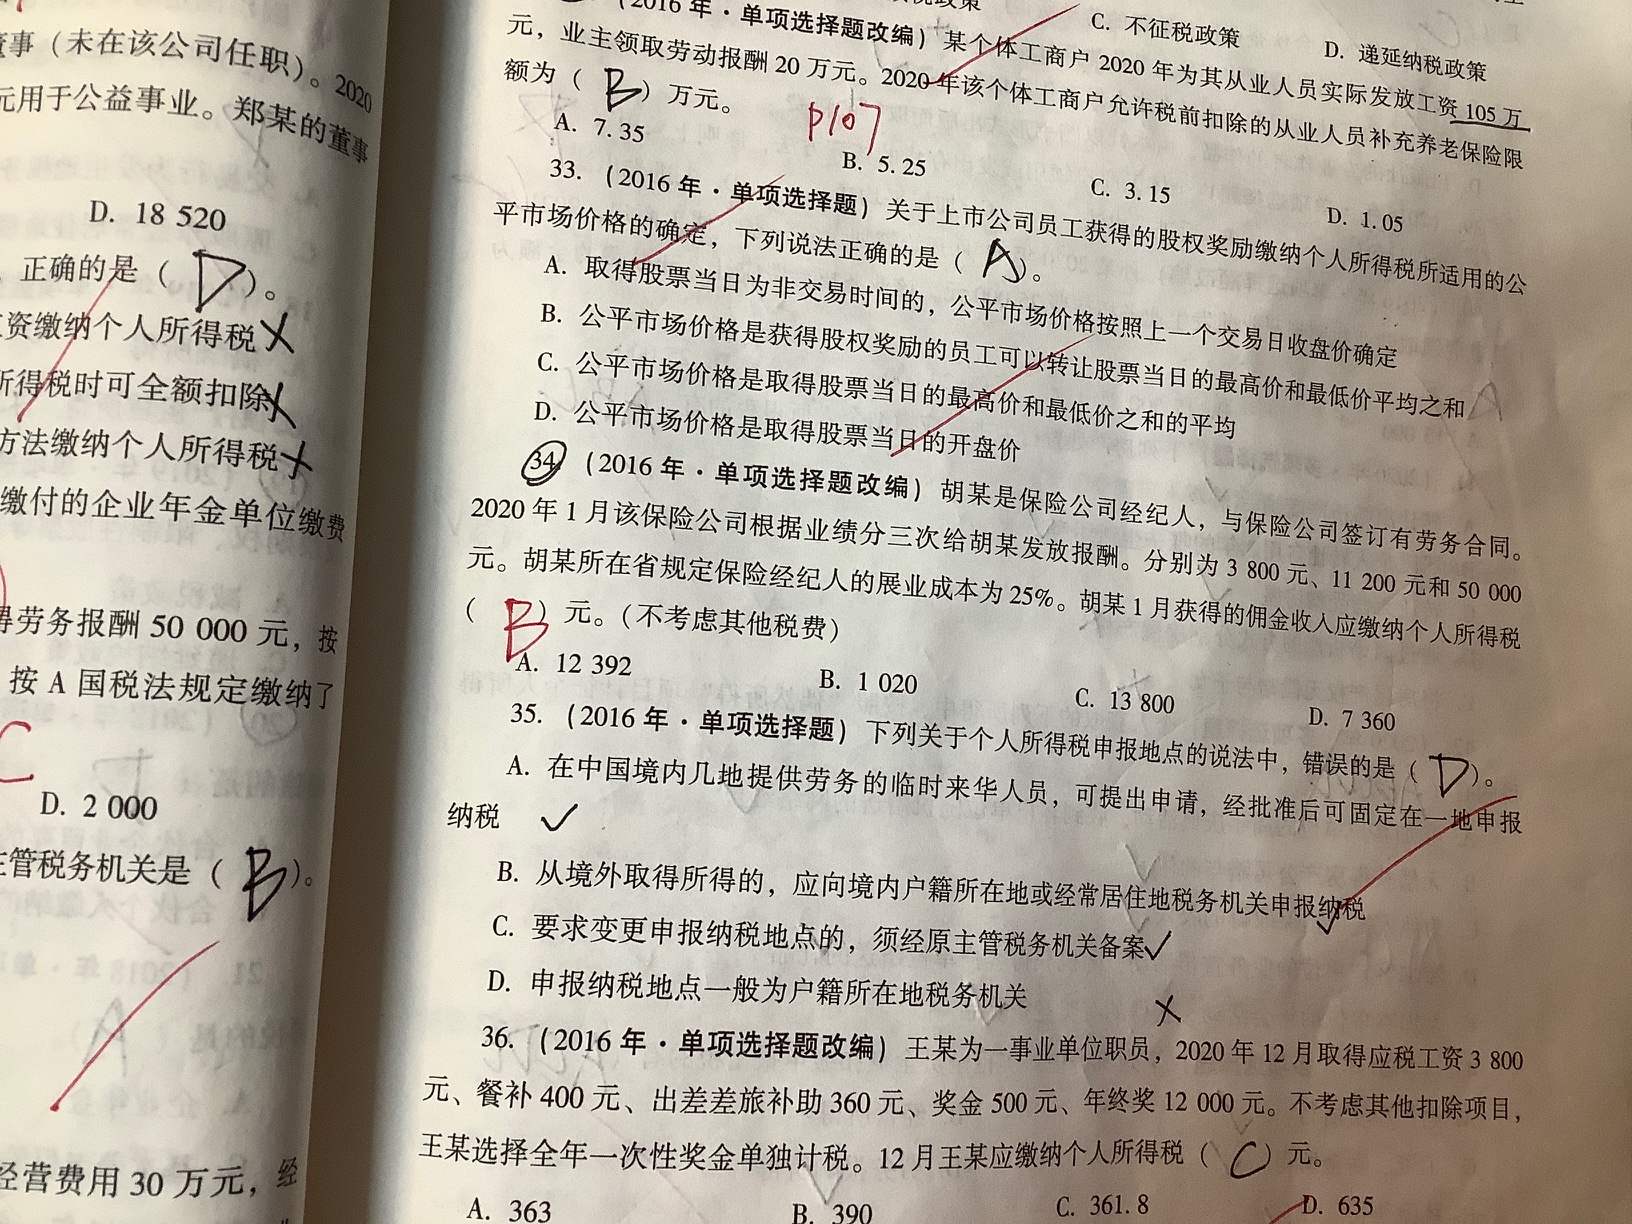 董事（未在该公司任职）。2020
元用于公益事业。郑某的董事
D. 18 520
正确的是（ D ）。
资缴纳个人所得税 ×
所得税时可全额扣除 ×
方法缴纳个人所得税 ×
缴付的企业年金单位缴费
得劳务报酬 50 000 元，按
按 A 国税法规定缴纳了
C
D. 2 000
主管税务机关是（ B ）。
经营费用 30 万元，经
C. 不征税政策
D. 递延纳税政策
（2016 年·单项选择题改编）某个体工商户 2020 年为其从业人员实际发放工资 105 万
元，业主领取劳动报酬 20 万元。2020 年该个体工商户允许税前扣除的从业人员补充养老保险限
额为（ B ）万元。
P107
A. 7.35 B. 5.25 C. 3.15 D. 1.05
33.（2016 年·单项选择题）关于上市公司员工获得的股权奖励缴纳个人所得税所适用的公
平市场价格的确定，下列说法正确的是（ A ）。
A. 取得股票当日为非交易时间的，公平市场价格按照上一个交易日收盘价确定
B. 公平市场价格是获得股权奖励的员工可以转让股票当日的最高价和最低价平均之和
C. 公平市场价格是取得股票当日的最高价和最低价之和的平均
D. 公平市场价格是取得股票当日的开盘价
34（2016 年·单项选择题改编）胡某是保险公司经纪人，与保险公司签订有劳务合同。
2020 年 1 月该保险公司根据业绩分三次给胡某发放报酬。分别为 3 800 元、11 200 元和 50 000
元。胡某所在省规定保险经纪人的展业成本为 25%。胡某 1 月获得的佣金收入应缴纳个人所得税
（ B ）元。（不考虑其他税费）
A. 12 392 B. 1 020 C. 13 800 D. 7 360
35.（2016 年·单项选择题）下列关于个人所得税申报地点的说法中，错误的是（ D ）。
A. 在中国境内几地提供劳务的临时来华人员，可提出申请，经批准后可固定在一地申报
纳税 ✓
B. 从境外取得所得的，应向境内户籍所在地或经常居住地税务机关申报纳税 ✓
C. 要求变更申报纳税地点的，须经原主管税务机关备案 ✓
D. 申报纳税地点一般为户籍所在地税务机关 ×
36.（2016 年·单项选择题改编）王某为一事业单位职员，2020 年 12 月取得应税工资 3 800
元、餐补 400 元、出差差旅补助 360 元、奖金 500 元、年终奖 12 000 元。不考虑其他扣除项目，
王某选择全年一次性奖金单独计税。12 月王某应缴纳个人所得税（ C ）元。
A. 363 B. 390 C. 361.8 D. 635